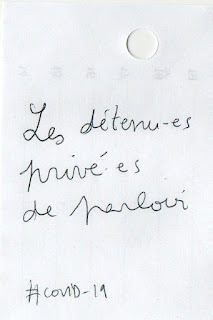 Les détenu-es
privé·es
de parloir
#COVID-19